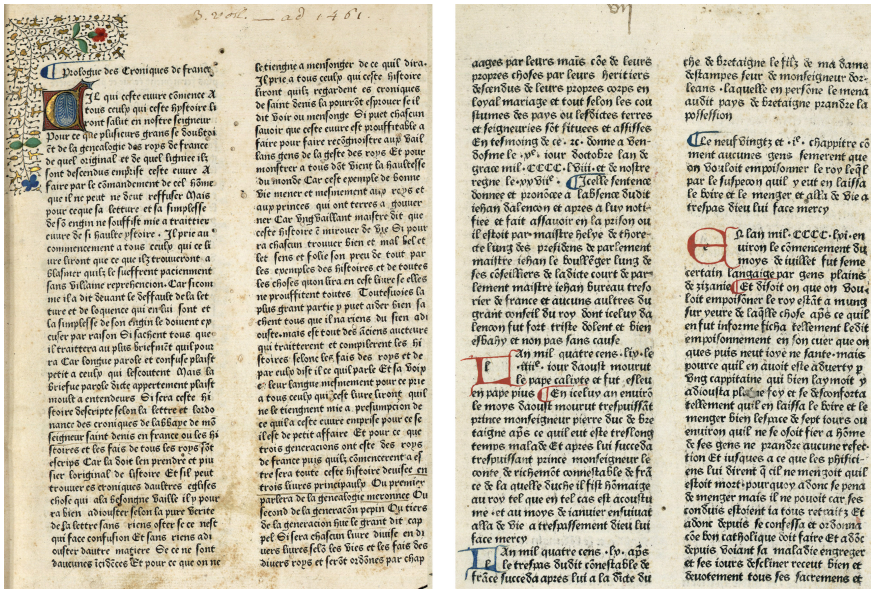 3. vol. — ad 1461.
Prologue des Croniques de france
CIL qui ceste euure cōmence A
tous ceulx qui ceste hystoire li
ront salut en nostre seigneur
Pour ce que plusieurs grans se doubtoi
ēt de la genealogie des roys de france
de quel original et de quel ligniee ilz
sont descendus emprist ceste euure A
faire par le cōmandement de cel hōme
que il ne peut ne deut reffuser Mais
pour ce que sa letture et sa simplesse
de sō engin ne souffist mie a traittier
euure de si haulte ystoire . Il prie au
commencement a tous ceulx qui ce li
ure liront que ce que ilz trouueront a
blasmer quilz le suffrent paciemment
sans villaine reprehencion. Car sicom
me il a dit deuant le deffault de la let
ture et de loquence qui en lui sont et
la simplesse de son engin le doiuent ex
cuser par raison Si sachent tous que
il traittera au plus briefmēt quil pour
ra Car longue parole et confuse plaist
petit a ceulx qui lescoutent Mais la
briefue parole dicte appertement plaist
moult a entendeurs Si sera ceste hi
stoire descripte selon la lettre et lordo
nance des croniques de labbaye de mō
seigneur saint denis en france ou les hi
stoires et les fais de tous les roys sōt
escrips Car la doit len prendre et pui
sier loriginal de listoire Et sil peut
trouuer es croniques daultres eglises
chose qui a la besongne vaille il y pour
ra bien adiouster selon la pure verite
de la lettre sans riens oster se ce nest
qui face confusion Et sans riens adi
ouster dautre matiere Se ce ne sont
daucunes īcidēces Et pour ce que on ne
le tiengne a mensonger de ce quil dira.
Il prie a tous ceulx qui ceste histoire
liront quilz regardent es croniques
de saint denis la pourrōt esprouuer se il
dit voir ou mensonge Si puet chascun
sauoir que ceste euure est prouffitable a
faire pour faire recōgnoistre aux vail
lans gens de la geste des roys Et pour
monstrer a tous dōt vient la haultesse
du monde Car ceste exemple de bonne
vie mener et mesmement aux roys et
aux princes qui ont terres a gouuer
ner Car vng vaillant maistre dit que
ceste histoire ē mirouer de vie Si pour
ra chascun trouuer bien et mal bel et
let sens et folie son preu de tout par
les exemples des histoires et de toutes
les choses quon lira en cest liure se elles
ne prouffitent toutes Toutesuoies la
plus grant partie y puet aider bien sa
chent tous que il na riens du sien adi
ouste. mais est tout des āciens aucteurs
qui traitterent et compilerent les hi
stoires selonc les fais des roys et de
par culx dist il ce quil parle Et sa voix
e leur langue mesmement pour ce prie
a tous ceulx qui cest liure liront quil
ne le tiengnent mie a presumpcion de
ce quil a ceste euure emprise pour ce se
il est de petit affaire Et pour ce que
trois generacions ont este des roys
de france puis quilz cōmencerent a es
tre sera toute ceste histoire deuisee en
trois liures principaulx Ou premier
parlera de la genealogie meronnee Ou
second de la generacōn pepin Ou tiers
de la generacion hue le grant dit cap
pel Si sera chascun liure diuise en di
uers liures selō les vies et les fais des
diuers roys et serōt ordōnes par chap
vij
aages par leurs mais cōe de leurs
propres choses par leurs heritiers
descendus de leurs propres corps en
loyal mariage et tout selon les cou
stumes des pays ou lesdictes terres
et seigneuries sōt situees et assisses
En tesmoing de ce . rc. donne a ven-
dosme le .xe. iour doctobre lan de
grace mil .CCCC. lviii. et de nostre
regne le .xxviie. Icelle sentence
donnee et pronōcee a labsence dudit
iehan dalencon et apres a luy noti-
fiee et fait assauoir en la prison ou
il estoit par maistre helye de thore-
te lung des presidens de parlement
maistre iehan le boulleger lung de
ses cōseilliers de ladicte court de par-
lement maistre iehan bureau treso
rier de france et aucuns aultres du
grant conseil du roy dont iceluy da
lencon fut fort triste dolent et bien
esbahy et non pas sans cause
LAn mil quatre cens .liv. le
.iiiie. iour daoust mourut
le pape calixte et fut esleu
en pape pius En iceluy an enuirō
le moys daoust mourut trespuissāt
prince monseigneur pierre duc de bre
taigne aps̄ ce quil eut este treslong
temps malade Et apres lui succeda
trespuissant prince monseigneur le
conte de richemōt connestable de frā
ce de la quelle duche il fist hōmaige
au roy tel que en tel cas est acoustu
me . et au moys de ianuier ensuiuāt
alla de vie a trespassement dieu lui
face mercy
LAn mil quatre cens .lv. aps̄
le trespas dudit cōnestable de
frāce succeda apres lui a la dicte du
che de bretaigne le filz de ma dame
destampes seur de monseigneur dor-
leans . laquelle en persōne le mena
audit pays de bretaigne prandre la
possession
Le neuf vingtz et .ii. chappitre cō
ment aucunes gens semerent que
on vouloit empoisonner le roy leql̄
par le suspecon quil y eut en laissa
le boire et le menger et alla de vie a
trespas dieu lui face mercy
EN lan mil .CCCC. lxi. en
uiron le cōmencement du
moys de iuillet fut seme
certain langaige par gens plains
de zizanie Et disoit on que on vou
loit empoisoner le roy estāt a mung
sur yeure de laq̄lle chose aps̄ ce quil
en fut informe ficha tellement ledit
empoisonnement en son cuer que on
ques puis neut ioye ne sante . mais
pource quil en auoit este aduerty p
vng cappitaine qui bien laymoit y
adiousta plaine foy et se desconforta
tellement quil en laissa le boire et le
menger bien lespace de sept iours ou
enuiron quil ne se osoit fier a hōme
de ses gens ne prandre aucune refec-
tion Et iusques a ce que les phisici-
ens lui dirent q̄ cil ne mengoit quil
estoit mort . pourquoy adonc se pena
de menger mais il ne pouoit car ses
conduis estoient ia tous retraitz Et
adonc depuis se confessa et ordonna
cōe bon catholique doit faire Et adōc
depuis voiant sa maladie engreger
et ses iours decliner receut bien et
deuotement tous ses sacremens et